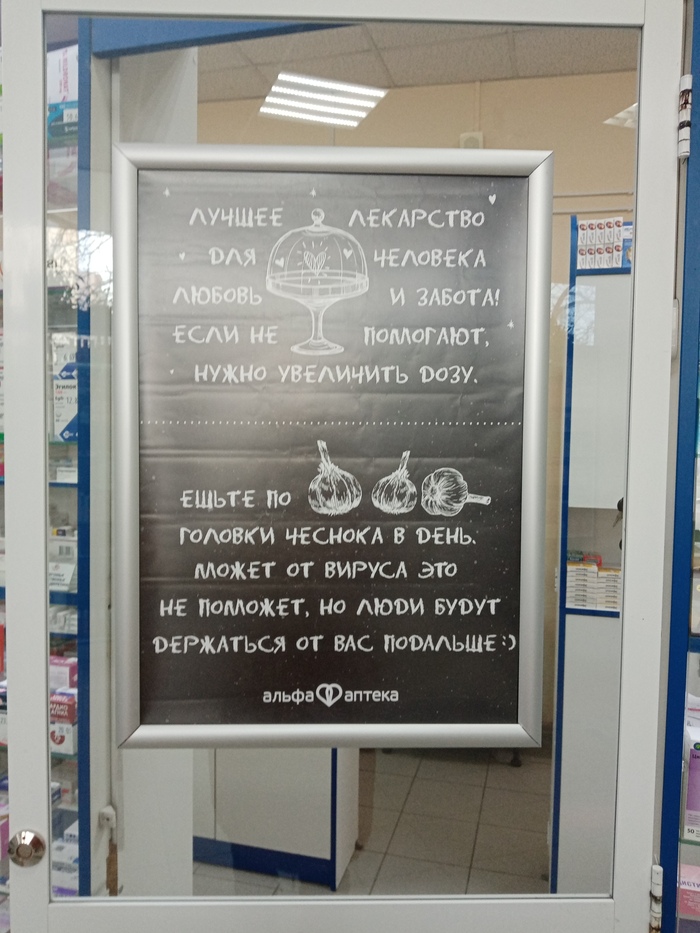 ЛУЧШЕЕ ЛЕКАРСТВО
ДЛЯ ЧЕЛОВЕКА
ЛЮБОВЬ И ЗАБОТА!
ЕСЛИ НЕ ПОМОГАЮТ,
НУЖНО УВЕЛИЧИТЬ ДОЗУ.
ЕШЬТЕ ПО
ГОЛОВКИ ЧЕСНОКА В ДЕНЬ.
МОЖЕТ ОТ ВИРУСА ЭТО
НЕ ПОМОЖЕТ, НО ЛЮДИ БУДУТ
ДЕРЖАТЬСЯ ОТ ВАС ПОДАЛЬШЕ :)
альфа аптека